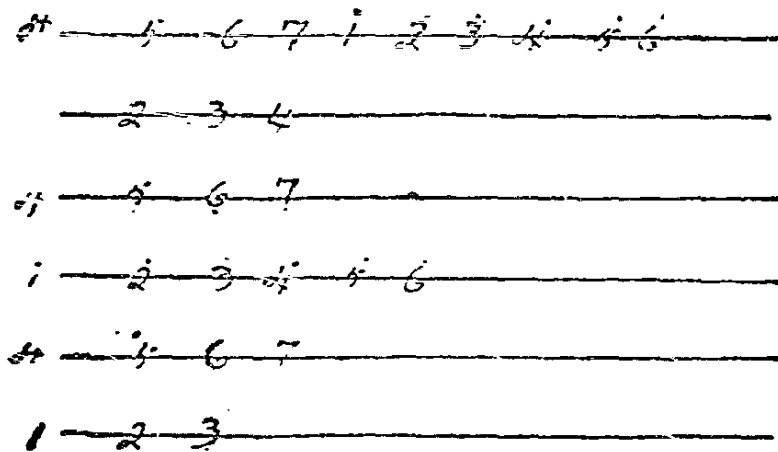 4 5 6 7 1̇ 2̇ 3̇ 4̇ 5̇ 6̇
2 3 4
4̣ 5̣ 6̣ 7̣
1̇ 2̇ 3̇ 4̇ 5̇ 6̇
4 5 6 7
1 2 3